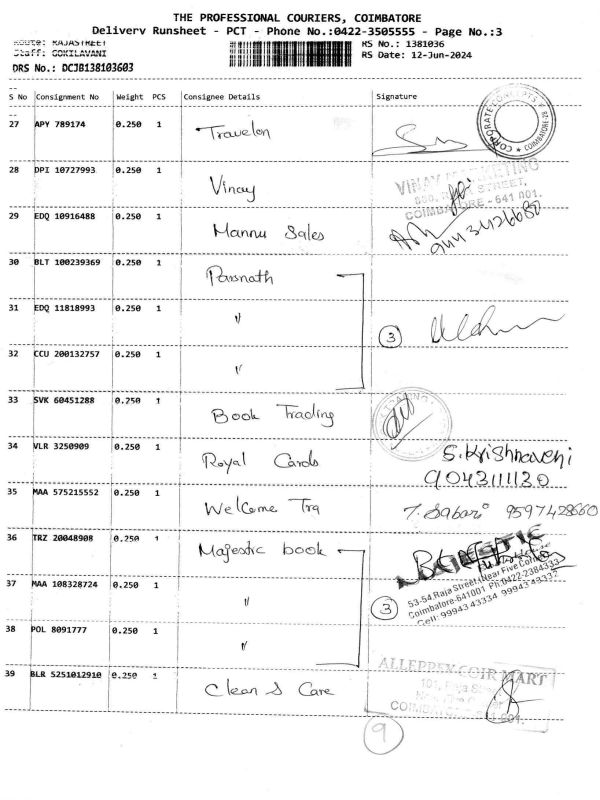 THE PROFESSIONAL COURIERS, COIMBATORE
Delivery Runsheet - PCT - Phone No.:0422-3505555 - Page No.:3
Route: RAJASTREET
Staff: GOKILAVANI
DRS No.: DCJB138103603
RS No.: 1381036
RS Date: 12-Jun-2024
S No Consignment No Weight PCS Consignee Details Signature
27 APY 789174 0.250 1 Travelon
CORPORATE CONCEPTS COIMBATORE
28 DPI 10727993 0.250 1 Vinay
VINAY MARKETING
STREET,
COIMBATORE - 641 001.
29 EDQ 10916488 0.250 1 Mannu Sales
9443426680
30 BLT 100239369 0.250 1 Parsnath
31 EDQ 11818993 0.250 1 "
3
32 CCU 200132757 0.250 1 "
33 SVK 60451288 0.250 1 Book Trading
34 VLR 3250909 0.250 1 Royal Cards
S.Krishnaveni
9043111130
35 MAA 575215552 0.250 1 Welcome Tra
T. Sabari 9597428660
36 TRZ 20048908 0.250 1 Majestic book
53-54, Raja Street, (Near Five Corner)
Coimbatore-641001 Ph:0422-2384333
Cell: 99943 43334 99943 43332
37 MAA 108328724 0.250 1 "
3
38 POL 8091777 0.250 1 "
39 BLR 5251012910 0.250 1 Clean & Care
ALLEPPEY COIR MART
101, Raja Street
COIMBATORE 641 001.
9